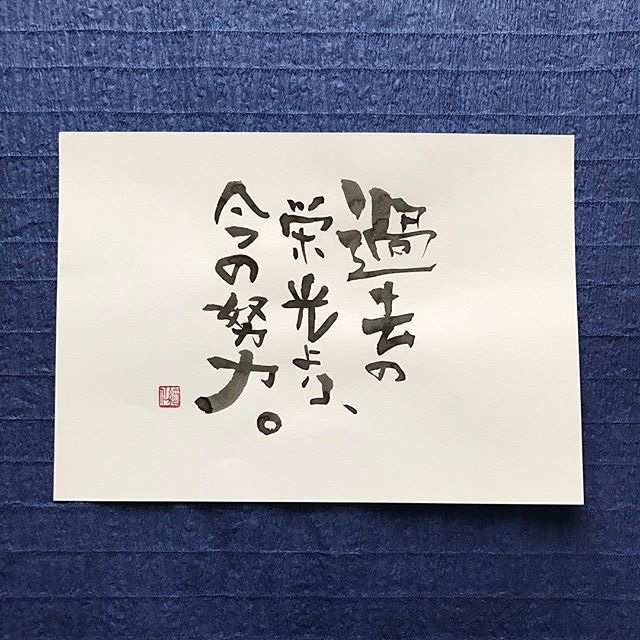 過去の
栄光より、
今の努力。